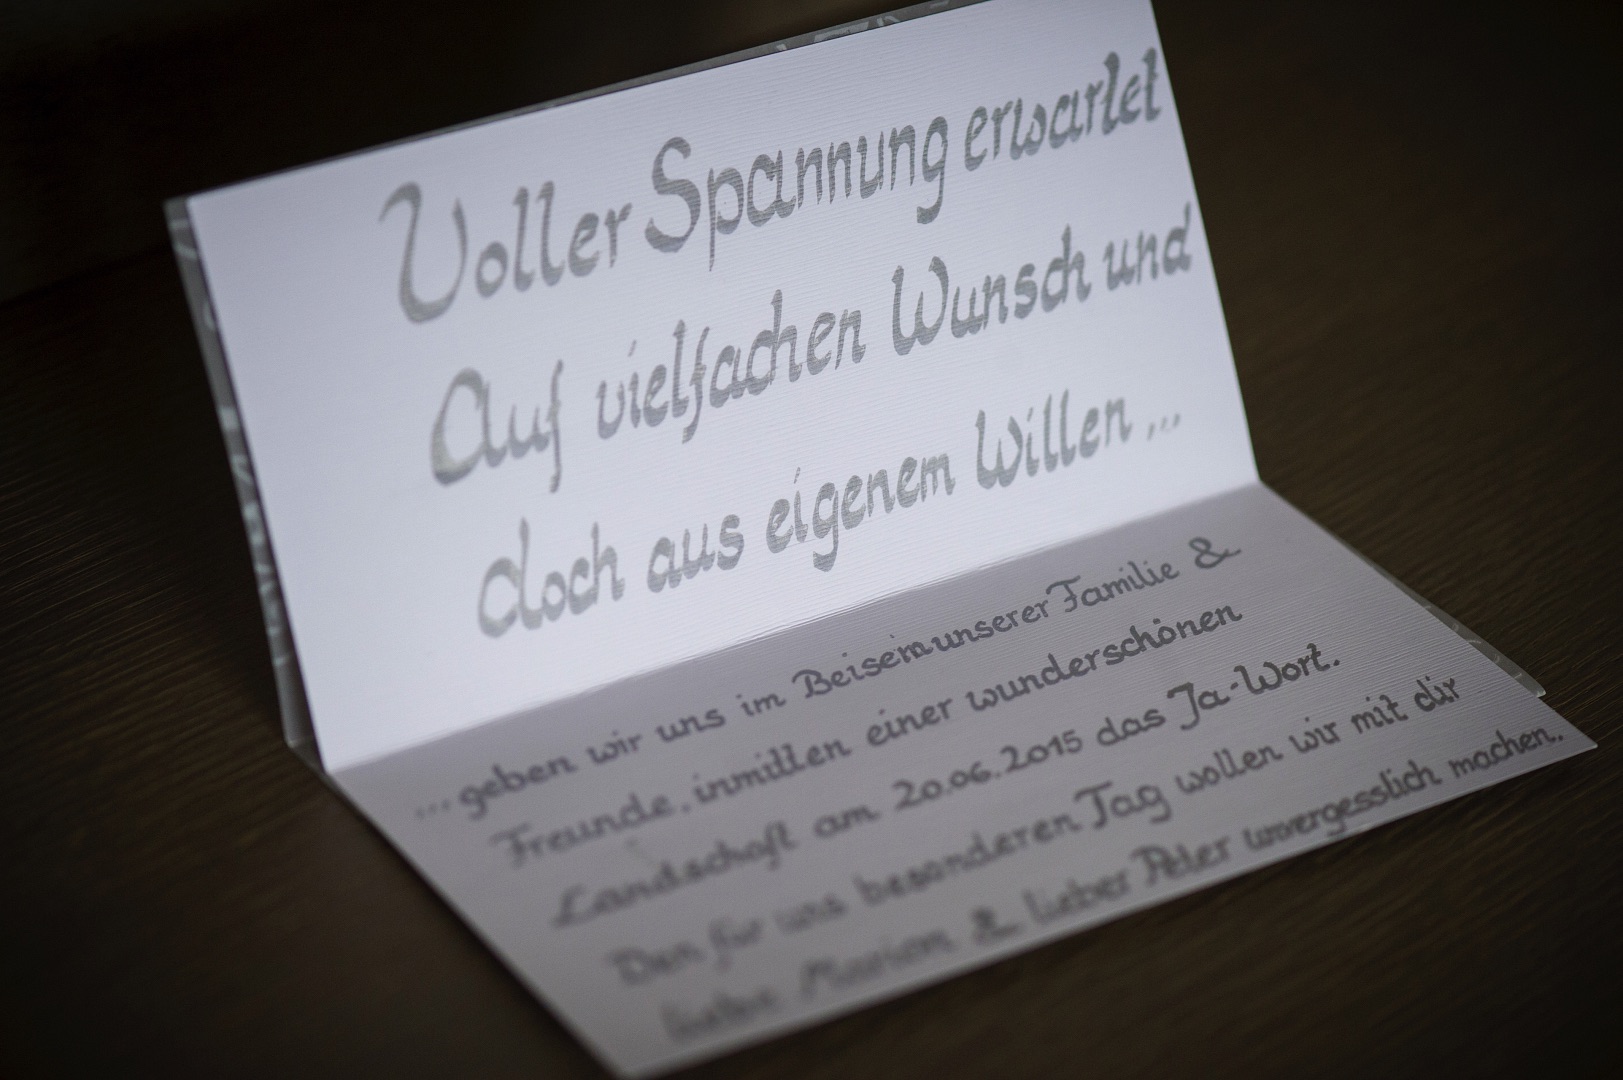 Voller Spannung erwartet
Auf vielfachen Wunsch und
doch aus eigenem Willen ...
...geben wir uns im Beisein unserer Familie &
Freunde, inmitten einer wunderschönen
Landschaft am 20.06.2015 das Ja-Wort.
Den für uns besonderen Tag wollen wir mit dir
liebe Marion & lieber Peter unvergesslich machen.